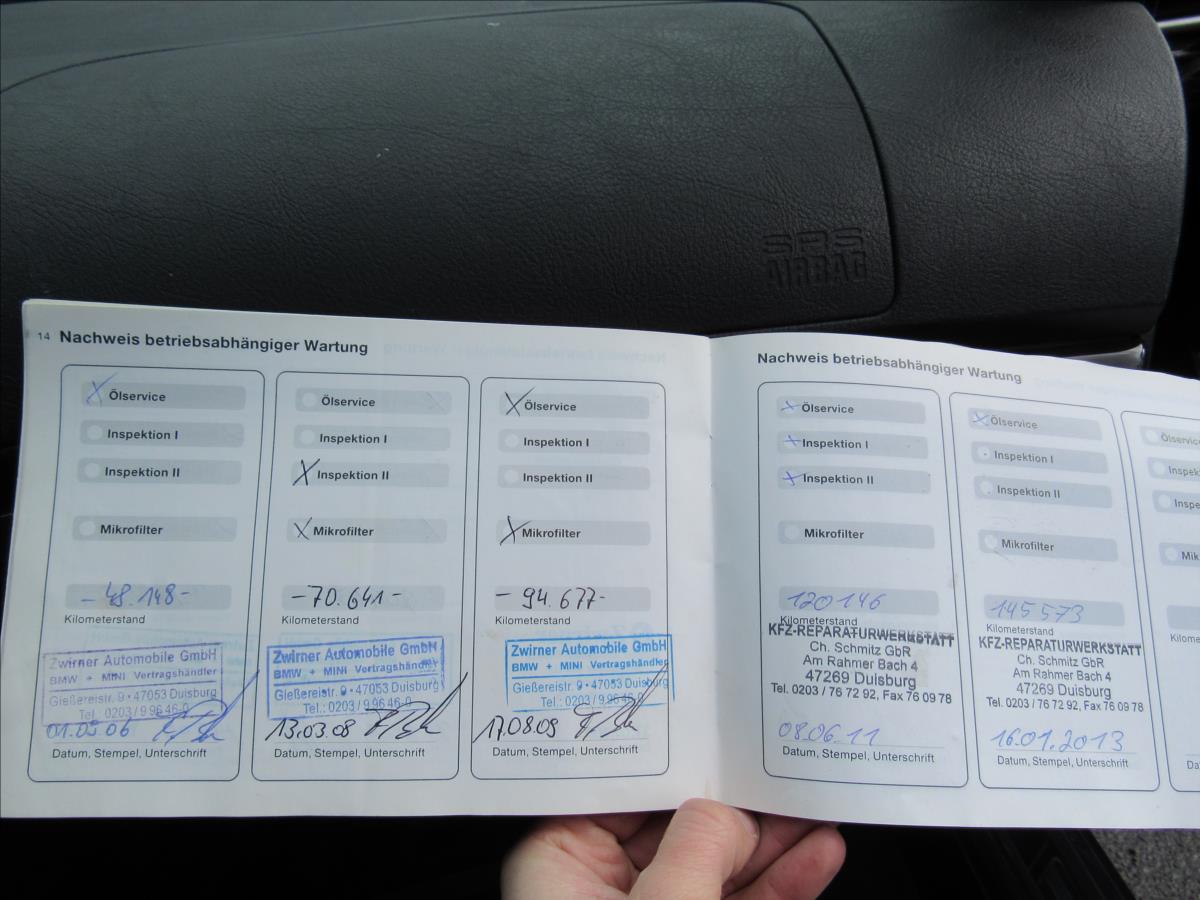 SRS
AIRBAG
14 Nachweis betriebsabhängiger Wartung
X Ölservice
Inspektion I
Inspektion II
Mikrofilter
-48.148-
Kilometerstand
Zwirner Automobile GmbH
BMW + MINI Vertragshändler
Gießereistr. 9 · 47053 Duisburg
Tel. 0203/9 96 46-0
Datum, Stempel, Unterschrift
Ölservice
Inspektion I
X Inspektion II
X Mikrofilter
-70.641-
Kilometerstand
Zwirner Automobile GmbH
BMW + MINI Vertragshändler
Gießereistr. 9 · 47053 Duisburg
Tel.: 0203/9 96 46-0
13.03.08
Datum, Stempel, Unterschrift
X Ölservice
Inspektion I
Inspektion II
X Mikrofilter
- 94.677-
Kilometerstand
Zwirner Automobile GmbH
BMW + MINI Vertragshändler
Gießereistr. 9 · 47053 Duisburg
Tel.: 0203/9 96 46-0
17.08.09
Datum, Stempel, Unterschrift
Nachweis betriebsabhängiger Wartung
X Ölservice
X Inspektion I
X Inspektion II
Mikrofilter
120146
Kilometerstand
KFZ-REPARATURWERKSTATT
Ch. Schmitz GbR
Am Rahmer Bach 4
47269 Duisburg
Tel. 0203 / 76 72 92, Fax 76 09 78
08.06.11
Datum, Stempel, Unterschrift
X Ölservice
Inspektion I
Inspektion II
Mikrofilter
145573
Kilometerstand
KFZ-REPARATURWERKSTATT
Ch. Schmitz GbR
Am Rahmer Bach 4
47269 Duisburg
Tel. 0203 / 76 72 92, Fax 76 09 78
16.01.2013
Datum, Stempel, Unterschrift
Ölservice
Inspek
Inspe
Mik
Kilome
Da